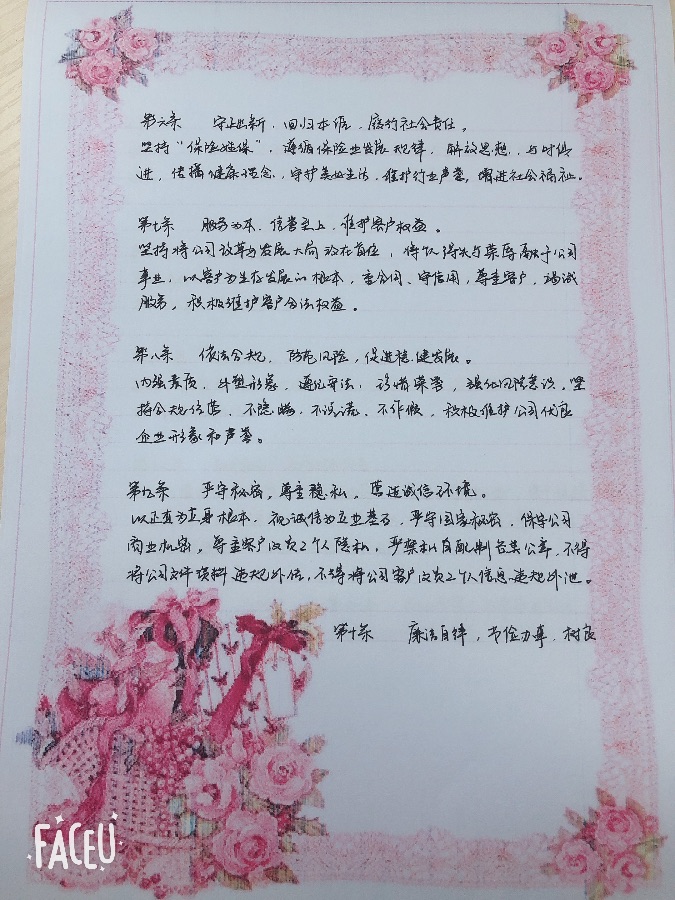 第六条 守正出新，回归本源，履行社会责任。
坚持“保险姓保”，遵循保险业发展规律，解放思想，与时俱
进，传播健康理念，守护美好生活，维护行业声誉，增进社会福祉。
第七条 服务为本，信誉至上，维护客户权益。
坚持将公司改革与发展大局放在首位，将个人得失与荣辱融于公司
事业，以客户为生存发展的根本，重合同、守信用，尊重客户，竭诚
服务，积极维护客户合法权益。
第八条 依法合规，防范风险，促进稳健发展。
内强素质，外塑形象，遵纪守法，珍惜荣誉，强化风险意识。坚
持合规经营，不隐瞒、不误导、不作假，积极维护公司优良
企业形象和声誉。
第九条 严守秘密，尊重隐私，营造诚信环境。
以正直为立身根本，视诚信为立业基石，严守国家秘密，保守公司
商业机密，尊重客户及员工个人隐私，严禁私自配制各类公章，不得
将公司文件资料违规外传，不得将公司客户及员工个人信息违规外泄。
第十条 廉洁自律，节俭办事，树良
FACEU